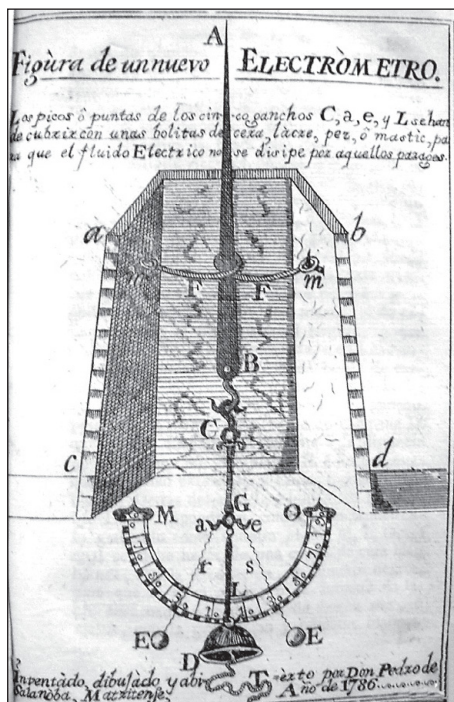 A
Figùra de un nuevo ELECTRÒMETRO.
Los picos ô puntas de los cinco ganchos C, a, e, y L se han
de cubrir con unas bolitas de cera, lacre, pez, ô mastic, pa
ra que el fluido Electrico no se disipe por aquellos parages.
a b
m m
F F
B
C
c d
G
M a e O
r s
L
E E
D
T
Inventàdo, dibujàdo y abierto por Don Pedro de
Salanòba, Matritense. Año de 1786.